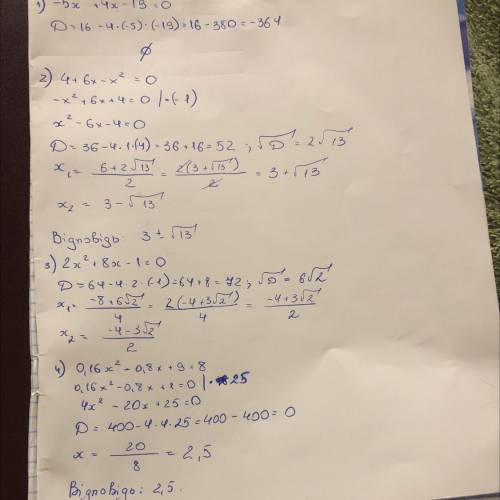 1) -5x² + 4x - 19 = 0
D = 16 - 4·(-5)·(-19) = 16 - 380 = -364
∅
2) 4 + 6x - x² = 0
-x² + 6x + 4 = 0 |·(-1)
x² - 6x - 4 = 0
D = 36 - 4·1·(4) = 36 + 16 = 52 ; √D = 2√13
x₁ = (6 + 2√13)/2 = 2(3 + √13)/2 = 3 + √13
x₂ = 3 - √13
Відповідь: 3 ± √13
3) 2x² + 8x - 1 = 0
D = 64 - 4·2·(-1) = 64 + 8 = 72 ; √D = 6√2
x₁ = (-8 + 6√2)/4 = 2(-4 + 3√2)/4 = (-4 + 3√2)/2
x₂ = (-4 - 3√2)/2
4) 0,16x² - 0,8x + 9 = 8
0,16x² - 0,8x + 1 = 0 |·25
4x² - 20x + 25 = 0
D = 400 - 4·4·25 = 400 - 400 = 0
x = 20/8 = 2,5
Відповідь: 2,5.